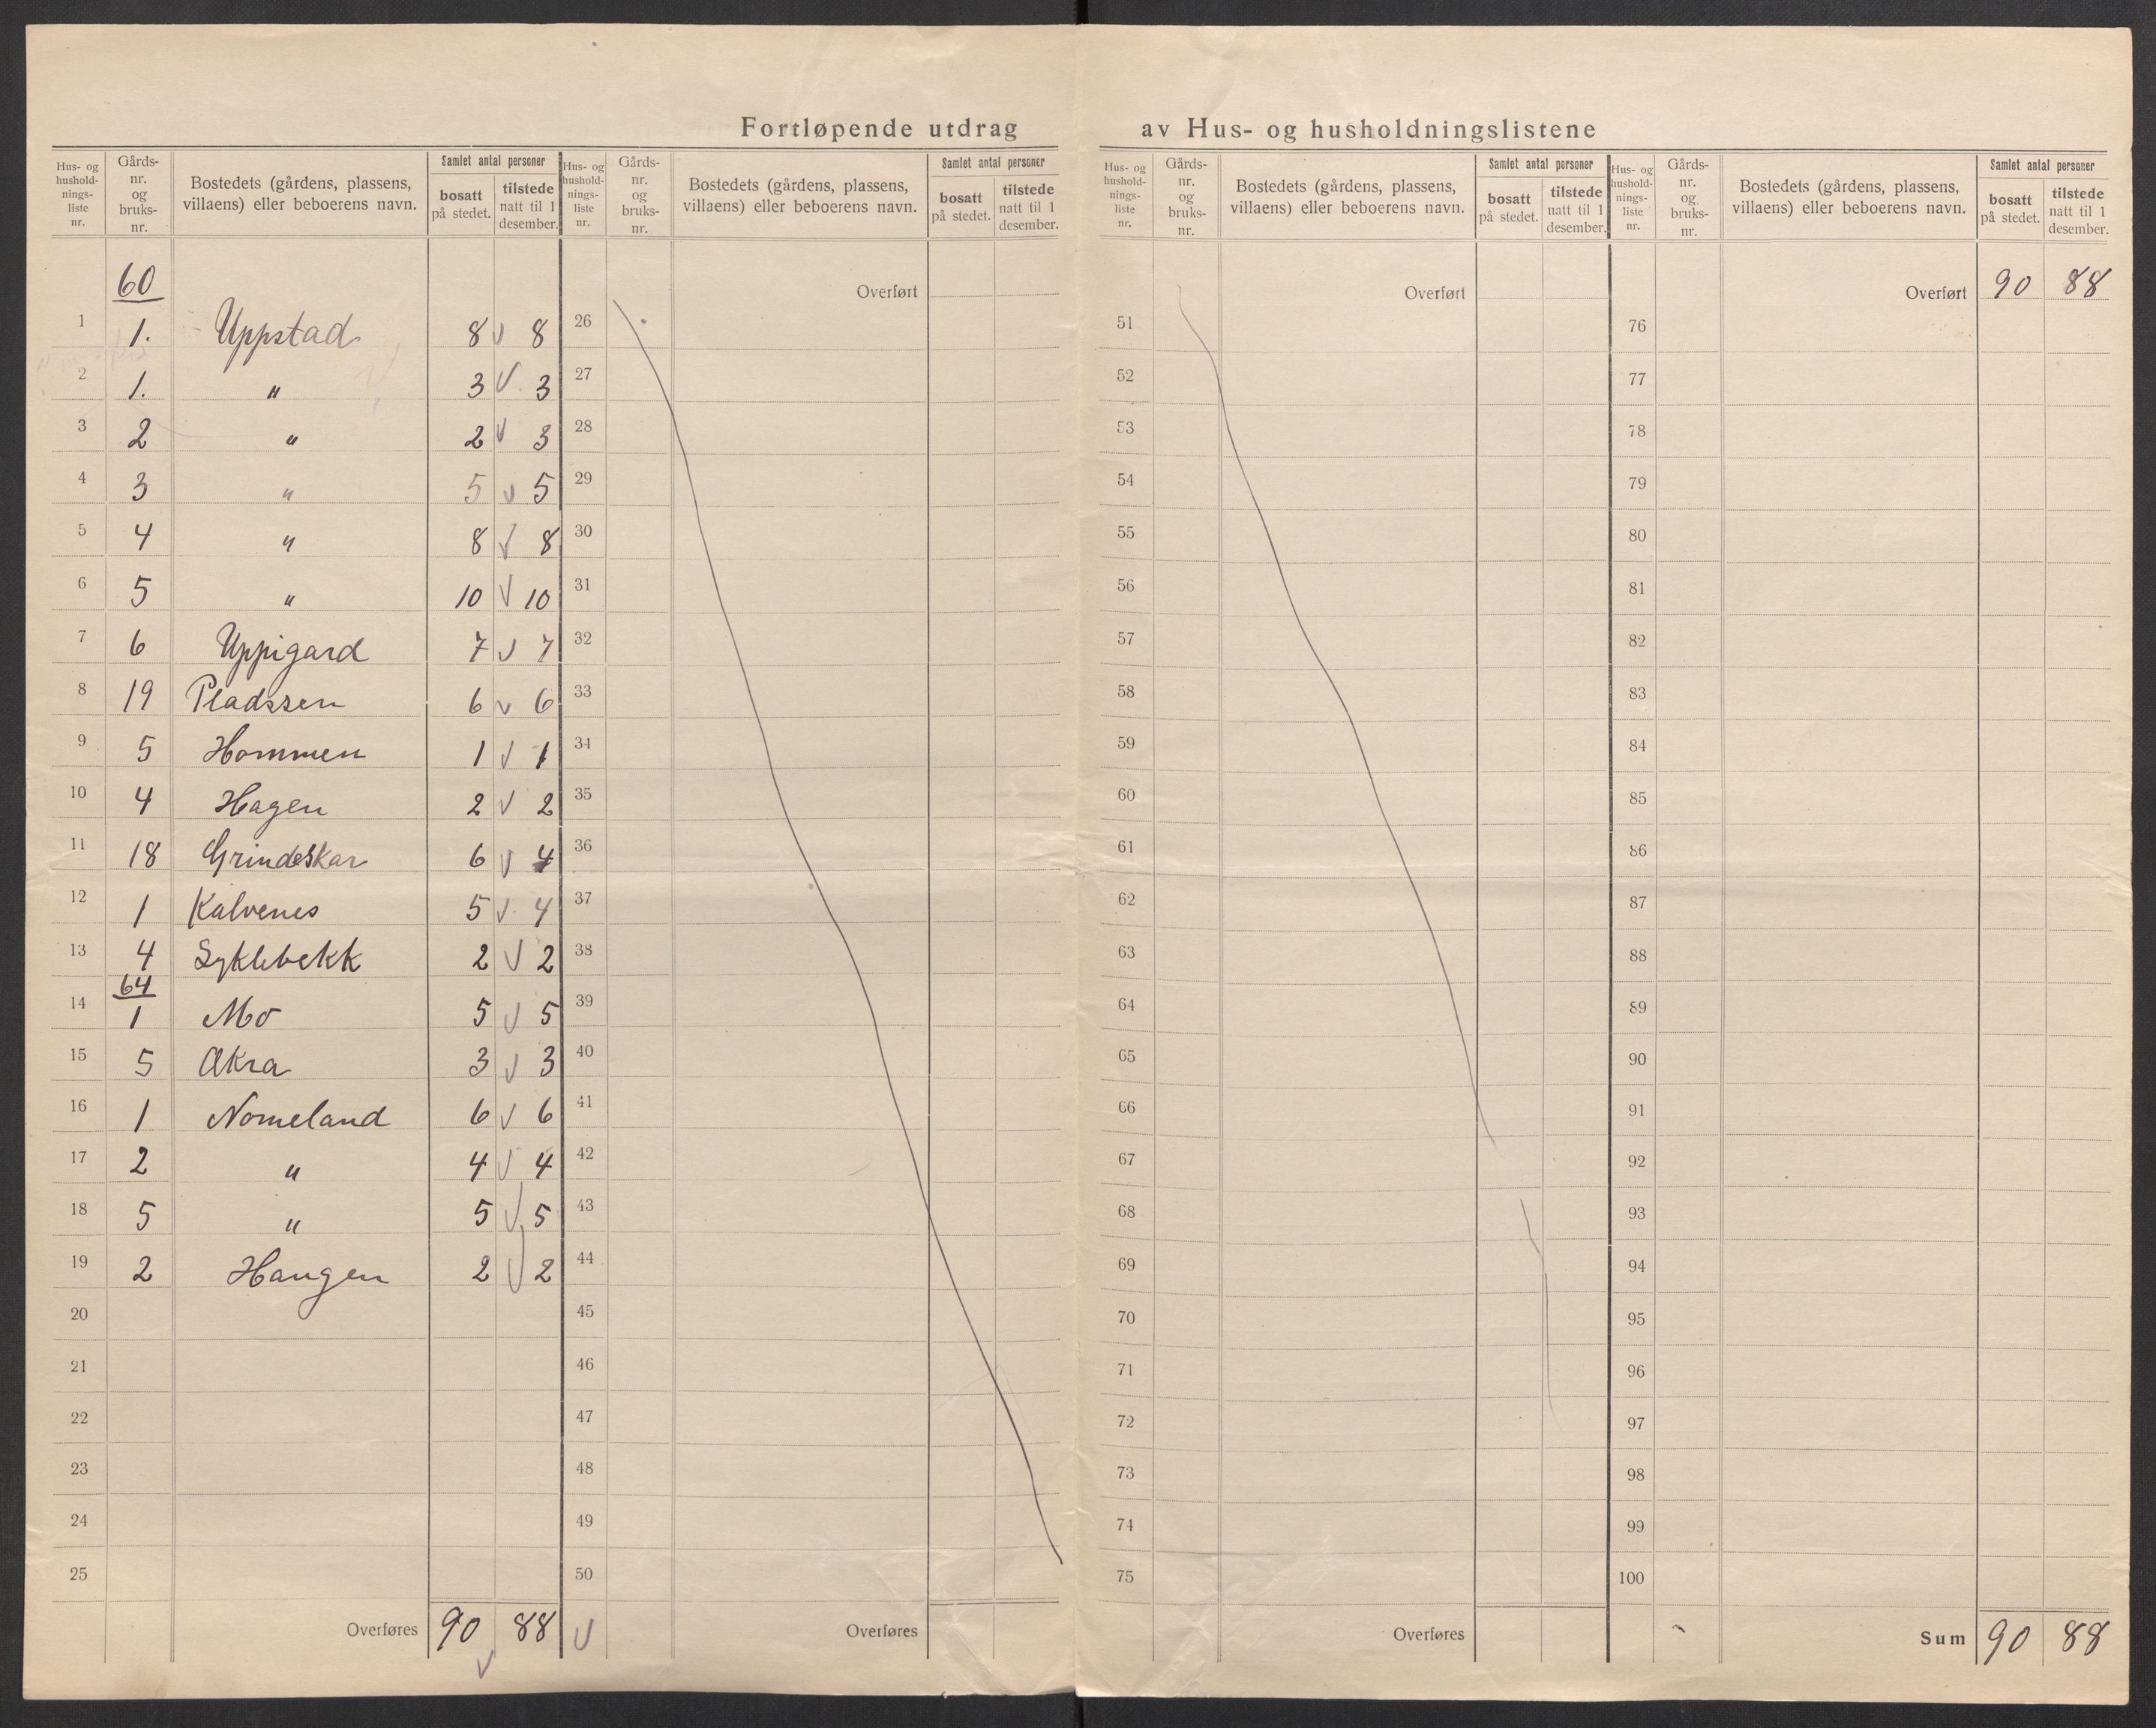 Fortløpende utdrag av Hus- og husholdningslistene
Hus- og hushold-nings-liste nr. Gårds-nr. og bruks-nr. Bostedets (gårdens, plassens, villaens) eller beboerens navn. Samlet antal personer bosatt på stedet. tilstede natt til 1 desember.
60
1 1. Uppstad 8 v 8
2 1. " 3 v 3
3 2 " 2 v 3
4 3 " 5 v 5
5 4 " 8 v 8
6 5 " 10 v 10
7 6 Uppigard 7 v 7
8 19 Pladssen 6 v 6
9 5 Hommen 1 v 1
10 4 Hagen 2 v 2
11 18 Grindeskar 6 v 4
12 1 Kalvenes 5 v 4
13 4 Syklebekk 2 v 2
64
14 1 Mo 5 v 5
15 5 Akra 3 v 3
16 1 Nomeland 6 v 6
17 2 " 4 v 4
18 5 " 5 v 5
19 2 Haugen 2 v 2
20
21
22
23
24
25
Overføres 90 88 v
v
Hus- og hushold-nings-liste nr. Gårds-nr. og bruks-nr. Bostedets (gårdens, plassens, villaens) eller beboerens navn. Samlet antal personer bosatt på stedet. tilstede natt til 1 desember.
Overført
26
27
28
29
30
31
32
33
34
35
36
37
38
39
40
41
42
43
44
45
46
47
48
49
50
Overføres
Hus- og hushold-nings-liste nr. Gårds-nr. og bruks-nr. Bostedets (gårdens, plassens, villaens) eller beboerens navn. Samlet antal personer bosatt på stedet. tilstede natt til 1 desember.
Overført
51
52
53
54
55
56
57
58
59
60
61
62
63
64
65
66
67
68
69
70
71
72
73
74
75
Overføres
Hus- og hushold-nings-liste nr. Gårds-nr. og bruks-nr. Bostedets (gårdens, plassens, villaens) eller beboerens navn. Samlet antal personer bosatt på stedet. tilstede natt til 1 desember.
Overført 90 88
76
77
78
79
80
81
82
83
84
85
86
87
88
89
90
91
92
93
94
95
96
97
98
99
100
Sum 90 88